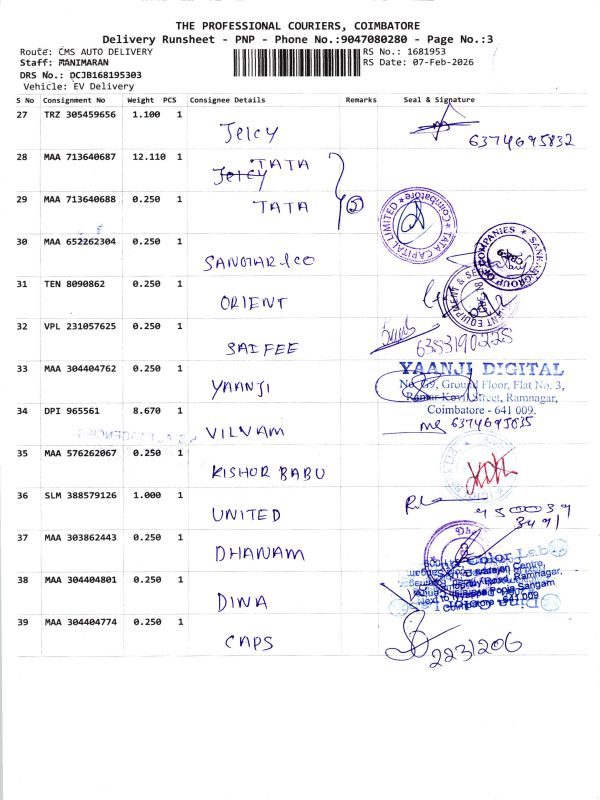 THE PROFESSIONAL COURIERS, COIMBATORE
Delivery Runsheet - PNP - Phone No.:9047080280 - Page No.:3
Route: CMS AUTO DELIVERY
RS No.: 1681953
Staff: MANIMARAN
RS Date: 07-Feb-2026
DRS No.: DCJB168195303
Vehicle: EV Delivery
S No Consignment No Weight PCS Consignee Details Remarks Seal & Signature
27 TRZ 305459656 1.100 1 Jelcy 6374695832
28 MAA 713640687 12.110 1 Jelcy TATA
29 MAA 713640688 0.250 1 TATA 2
TATA CAPITAL LIMITED * Coimbatore *
30 MAA 652262304 0.250 1 SANMAR & CO
31 TEN 8090862 0.250 1 ORIENT
32 VPL 231057625 0.250 1 SAIFEE 6353190225
33 MAA 304404762 0.250 1 YAANJI
YAANJI DIGITAL
No. G9, Ground Floor, Flat No. 3,
Ramar Kovil Street, Ramnagar,
Coimbatore - 641 009.
34 DPI 965561 8.670 1 VILVAM 6374695835
35 MAA 576262067 0.250 1 KISHOR BABU
36 SLM 388579126 1.000 1 UNITED
950039
3491
37 MAA 303862443 0.250 1 DHANAM
38 MAA 304404801 0.250 1 DINA
Color Lab
Ramnagar,
Coimbatore - 641 009
39 MAA 304404774 0.250 1 CAPS 2231206